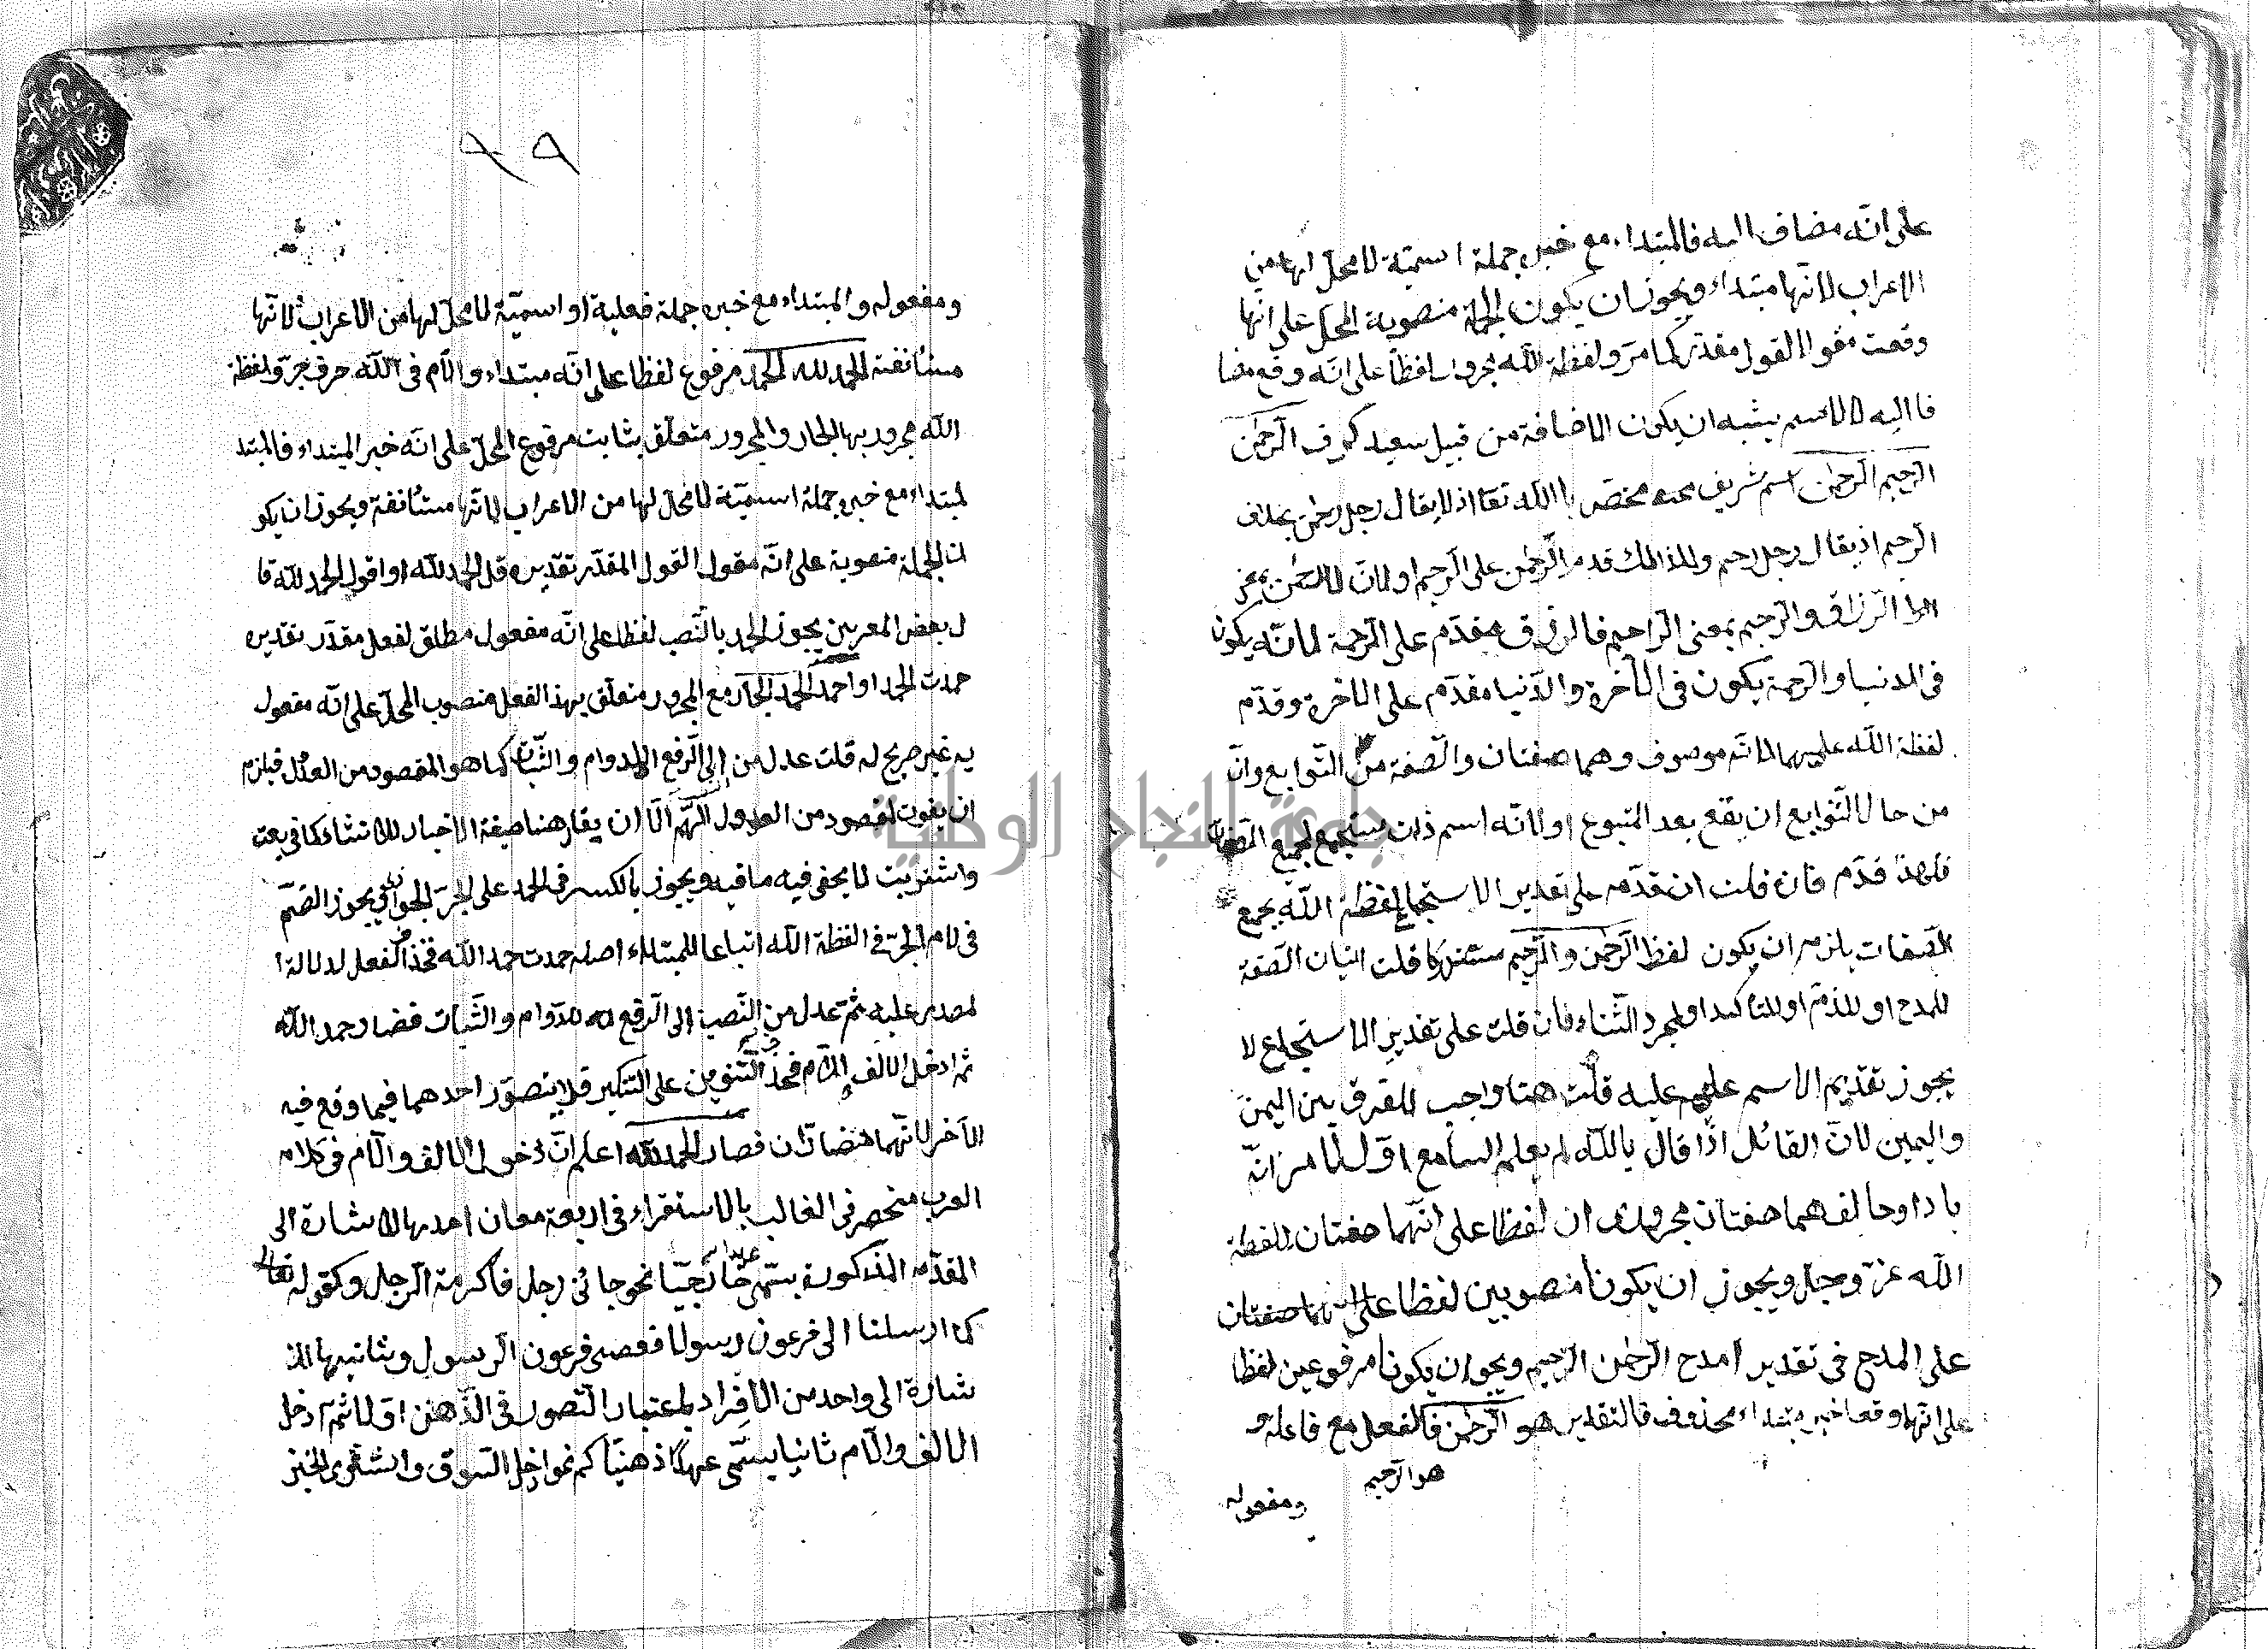 على انّه مضاف اليه فالمبتداء مع خبره جملة اسميّة لا محلّ لها من
الاعراب لانّها مبتداء ويجوز ان يكون الجملة منصوبة المحلّ على انها
وقعت مقولا لقول مقدّر كما مرّ ولفظة اللّه مجرور لفظاً على انّه وقع مضا
فا اليه لاسم يشبه ان يكون الاضافة من قبيل سعيد كرف الرّحمن
الرّحيم الرّحمن اسم شريف مختصّ با اللّه تعا اذ لا يقال رجل رحمن بخلاف
الرّحيم اذ يقال رجل رحيم ولذالك قدم الرّحمن على الرّحيم او لانّ الرّحمن بمعنى
الرّزاق والرّحيم بمعنى الرّاحيم فالرزق مقدّم على الرّحمة لانّه يكون
فى الدنيا والرّحمة يكون فى الآخرة والدّنيا مقدّم على الاخرة وقدّم
لفظة اللّه عليهما لانّه موصوف وهما صفتان والصّفة من التّوابع وانّ
من حال التّوابع ان يقع بعد المتبوع او لانّه اسم ذات مستجمع لجميع الصّفات
فلهذا قدّم فان قلت ان قدّم على تقدير الاستجماع لفظة اللّه يجمع
الصّفات يلزم ان يكون لفظ الرّحمن والرّحيم قلت اتيان الصّفة
للمدح او للذمّ او للتّاكيد او لمجرد الثّناء فان قلت على تقدير الاستجماع لا
يجوز تقديم الاسم عليه قلت هنا واجب للفرق بين اليمن
واليمين لانّ القائل اذا قال باللّه لم يعلم السامع اوّل الامر انّه
با داوحالف هما صفتان مجروران لفظا على انّهما صفتان للفظة
اللّه عزّ وجلّ ويجوز ان يكونا منصوبين لفظا على انهما صفتان
على المدح فى تقدير امدح الرّحمن الرّحيم ويجوز ان يكونا مرفوعين لفظا
على انّهما وقعا خبر مبتداء محذوف فالتقدير هو الرّحمن فالفعل مع فاعله و
هو الرّحيم
ومفعوله
٩٩
ومفعوله والمبتداء مع خبره جملة فعلية او اسميّة لا محلّ لها من الاعراب لانّها
مستأنفة الحمد للّه الحمد مرفوع لفظا على انّه مبتداء والّام فى اللّه حرف جرّ ولفظة
اللّه مجرور بها الجار والمجرور متعلّق بثابت مرفوع المحلّ على انّه خبر المبتداء فالمبتد
لمبتداء مع خبره جملة اسميّة لا محلّ لها من الاعراب لانّها مستأنفة ويجوز ان يكو
ن الجملة منصوبة على انّه مقول القول المقدّر تقديره قل الحمد للّه او اقول الحمد للّه قا
ل بعض المعربين يجوز الحمد بالنّصب لفظا على انّه مفعول مطلق لفعل مقدّر تقديره
حمدت الحمد او احمد الحمد الجار مع المجرور متعلّق بهذا الفعل منصوب المحلّ على انّه مفعول
به غير صريح له قلت عدل من الى الرّفع للدوام والثّبات كما هو المقصود من العدل فيلزم
ان يفوت لمقصود من العدول اللّهمّ الّا ان يقار هنا صيغة الاخبار للانشاء كما فى بعت
واشتريت لا يخفى فيه ما فيه ويجوز بالكسر فى الحمد على الجرّ الجوار ويجوز الضمّ
فى لام الجرّ فى لفظة اللّه اتباعا للمبتداء اصله حمدت حمد اللّه فحذف الفعل لدلالة ا
لمصدر عليه ثمّ عدل من النّصب الى الرّفع للدّوام والثّبات فصار حمد اللّه
ثم ادخل الالف والّام فحذف التّنوين على التّنكير فلا يتصوّر احدهما فيما وقع فيه
الآخر لانّهما متضادّان فصار الحمد للّه اعلم انّ دخول الالف والّام فى كلام
العرب منحصر فى الغالب بالاستقراء فى اربعة معان احدها الاشارة الى
المقدّم المذكور يسمّى عهدا خارجيّا نحو جائنى رجل فاكرمت الرّجل وكقوله تعالى
كما ارسلنا الى فرعون رسولا فعصى فرعون الرّسول وثانيها الا
شارة الى واحد من الافراد باعتبار التّصور فى الذّهن اوّلا ثمّ ادخل
الالف والّام ثانيا يسمّى عهدًا ذهنيّا كم نحو ادخل السّوق واشترى الخبز
جامعة النجاح الوطنية